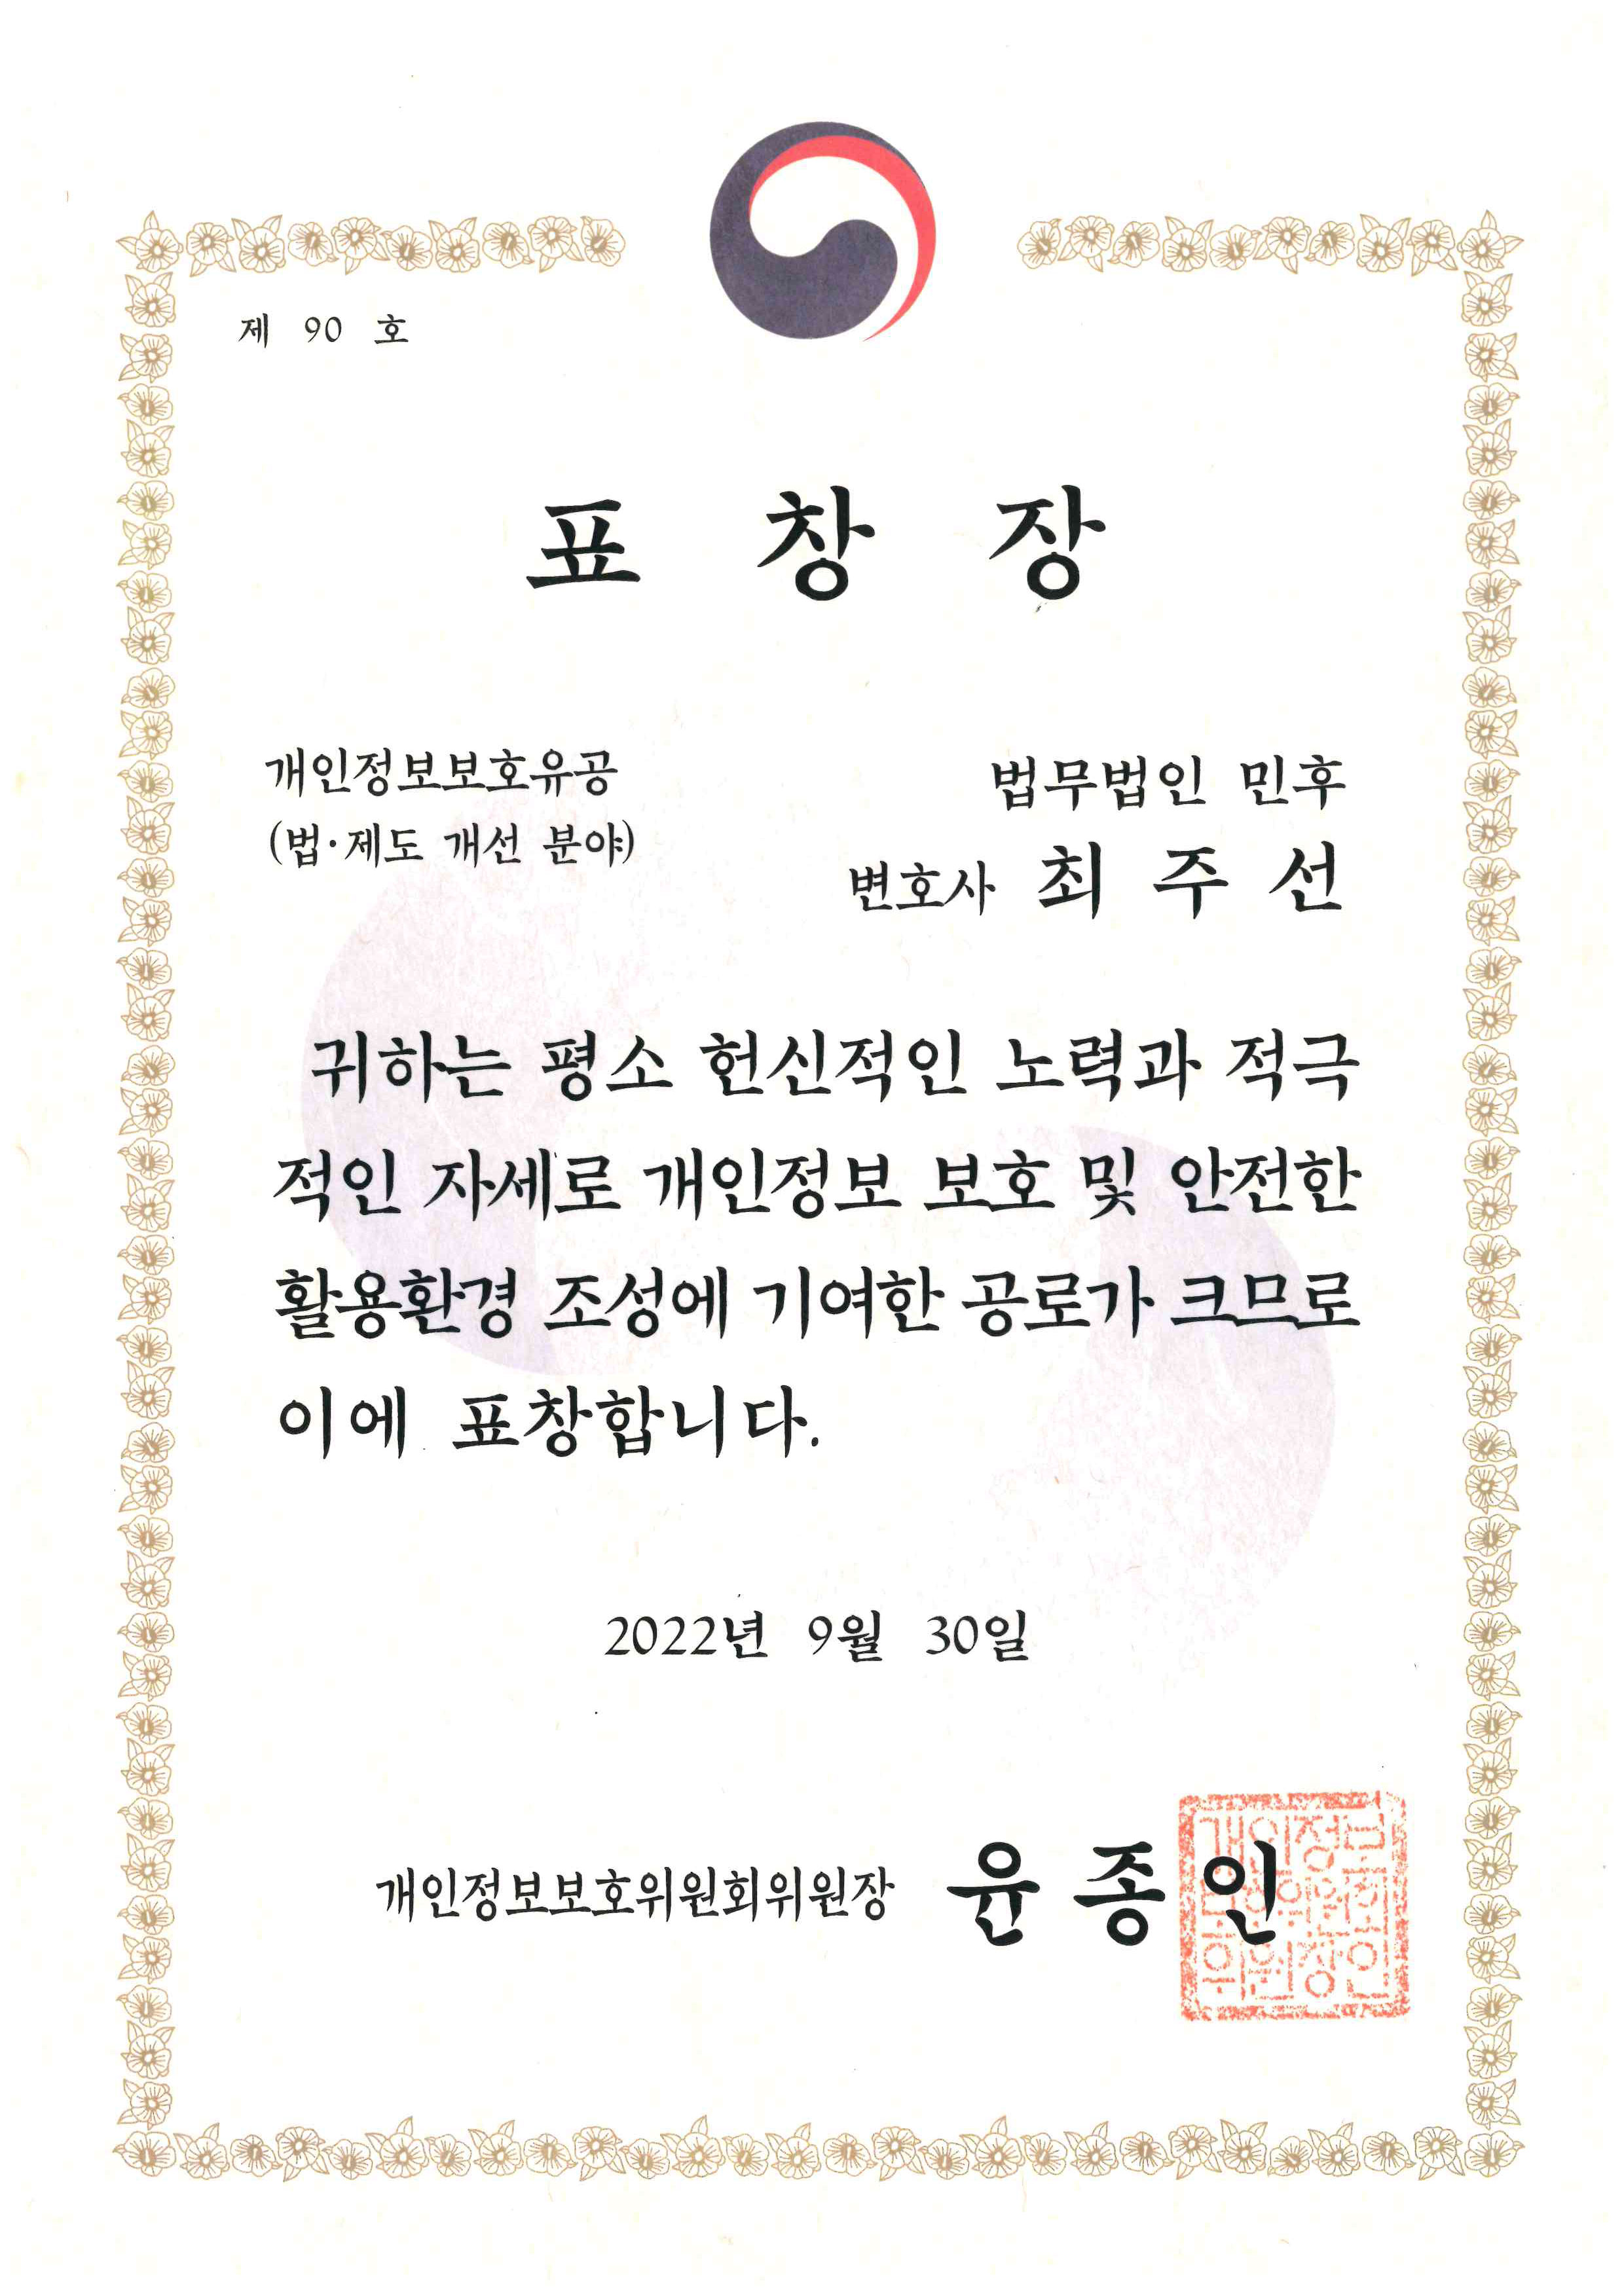 제 90 호
표 창 장
개인정보보호유공
(법·제도 개선 분야)
법무법인 민후
변호사 최 주 선
귀하는 평소 헌신적인 노력과 적극
적인 자세로 개인정보 보호 및 안전한
활용환경 조성에 기여한 공로가 크므로
이에 표창합니다.
2022년 9월 30일
개인정보보호위원회위원장 윤 종 인
개인정보
보호위원회
위원장인